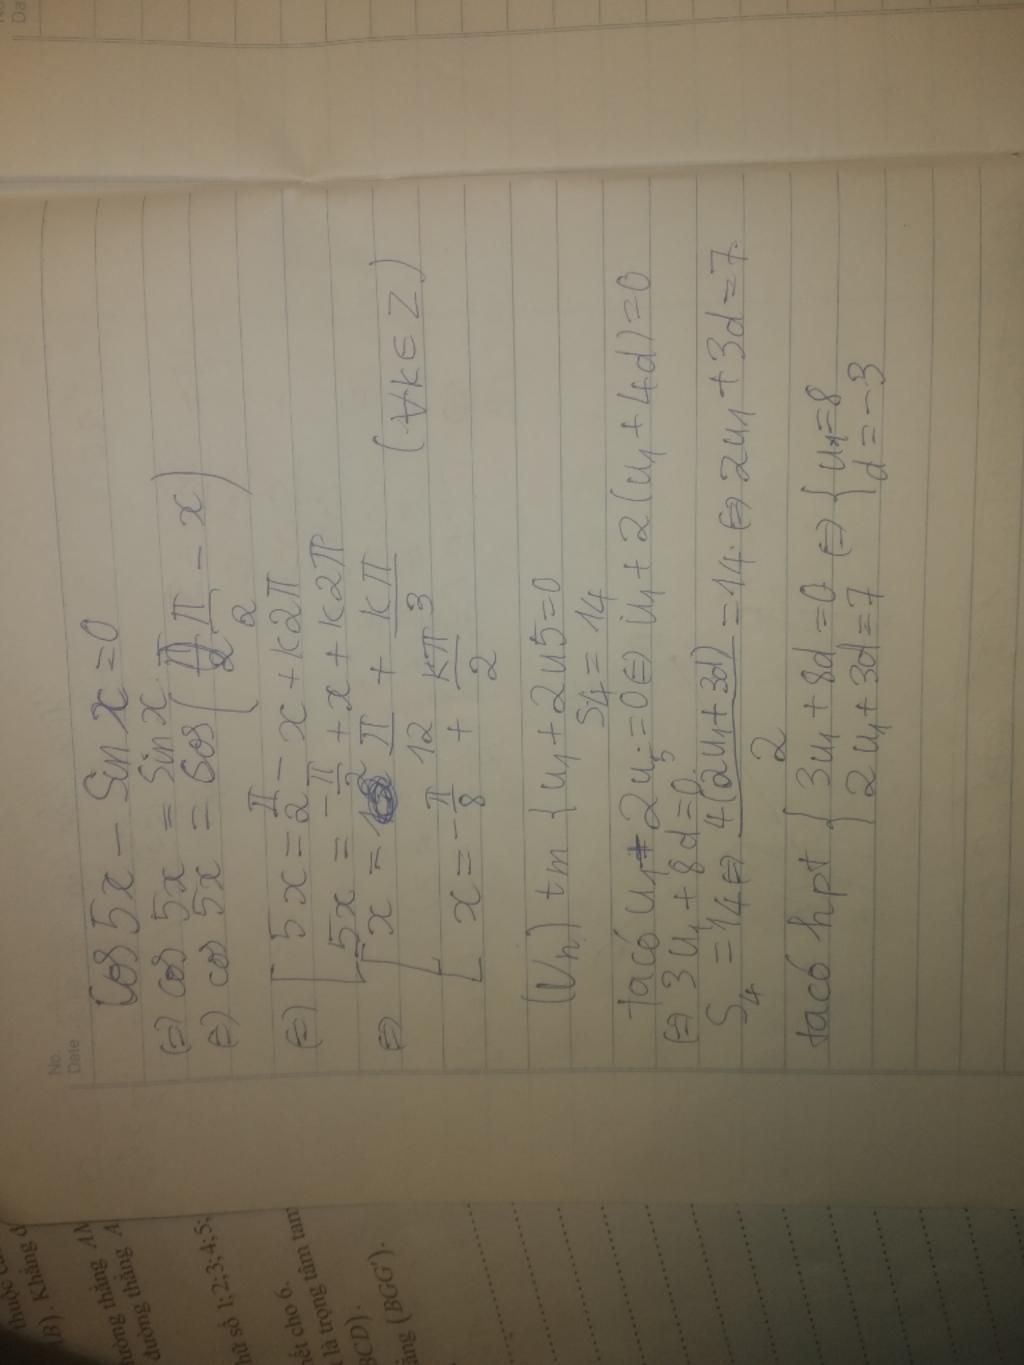 No.
Date
cos 5x - Sin x = 0
⇔ cos 5x = Sin x
⇔ cos 5x = cos (π/2 - x)
⇔ [ 5x = π/2 - x + k2π
[ 5x = -π/2 + x + k2π
⇔ [ x = π/12 + kπ/3
[ x = -π/8 + kπ/2 (∀k ∈ Z)
(Un) tm { u1 + 2u5 = 0
S4 = 14
ta có u1 + 2u5 = 0 ⇔ u1 + 2(u1 + 4d) = 0
⇔ 3u1 + 8d = 0
S4 = 14 ⇔ 4(2u1 + 3d)/2 = 14 ⇔ 2u1 + 3d = 7
ta có hpt { 3u1 + 8d = 0 ⇔ { u1 = 8
{ 2u1 + 3d = 7 { d = -3
(B). Khẳng
đường thẳng
đường thẳng A
số 1;2;3;4;5;
hết cho 6.
là trọng tâm tam
BCD).
(BGG').